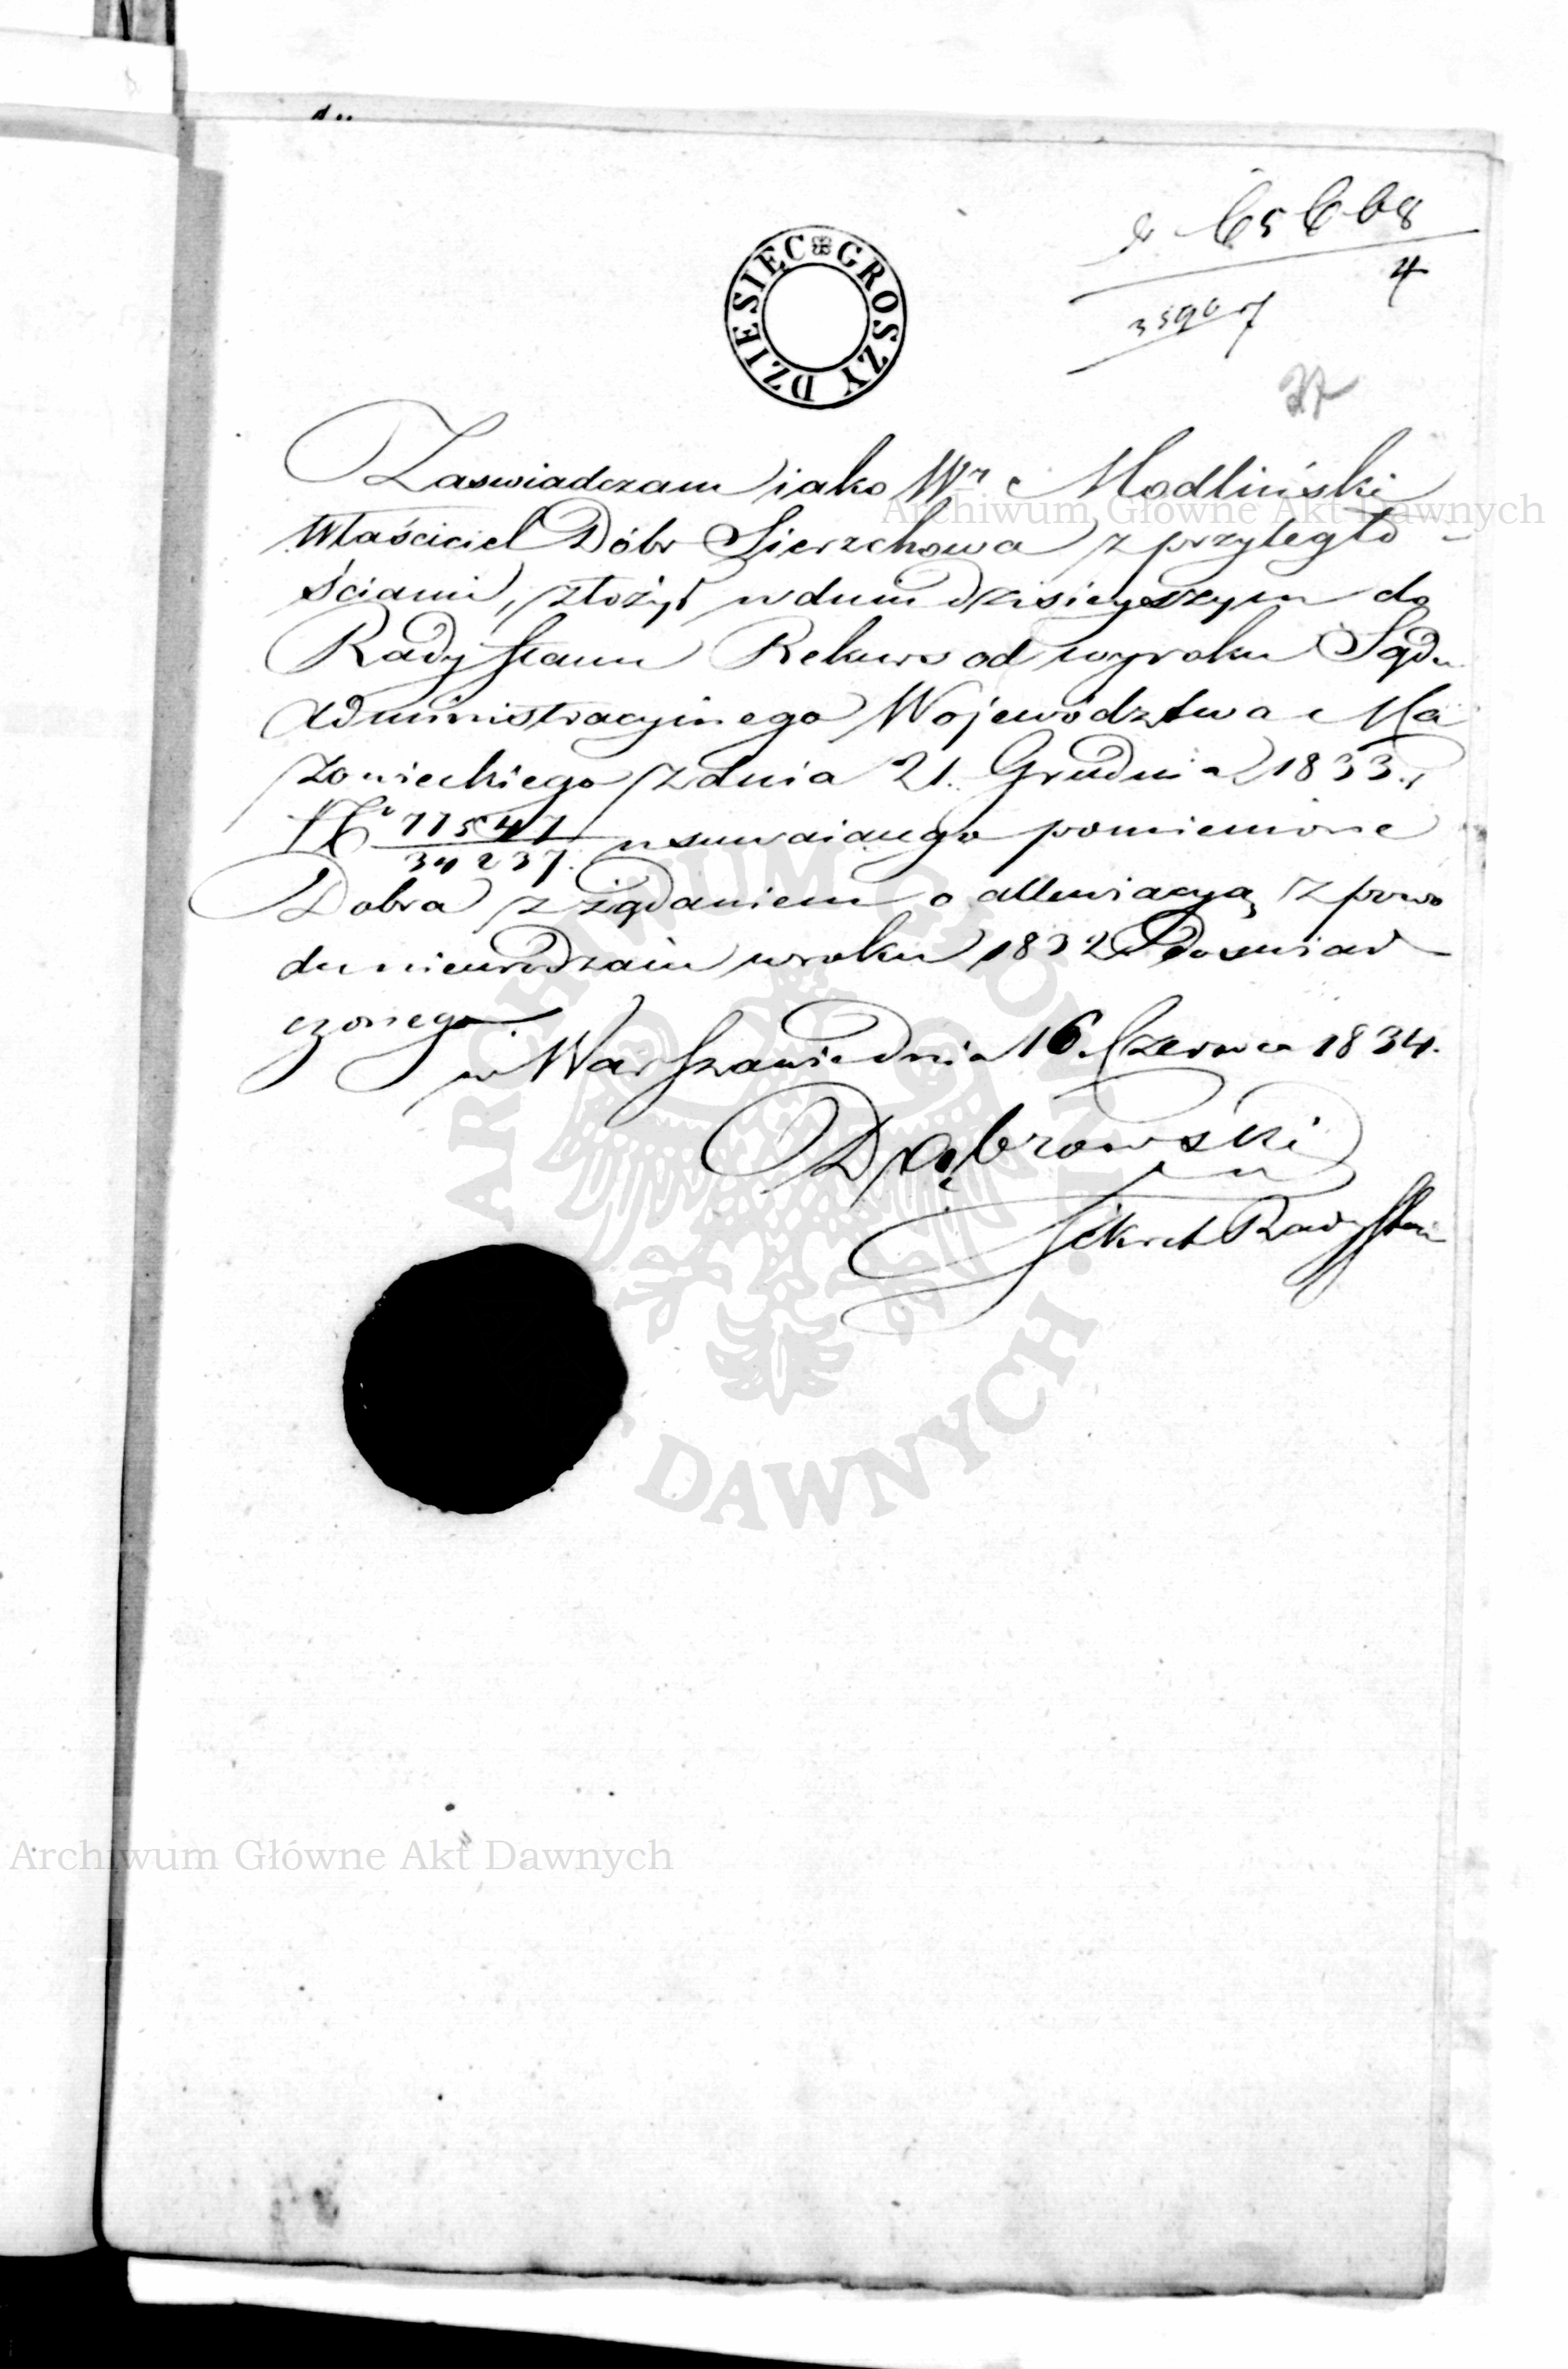 65668
4
35907
27
DZIESIĘC GROSZY
Zaswiadczam iako Wr Modliński
Właściciel Dóbr Sierzchowa z przyległo-
ściami, złożył w dniu dzisieyszym do
Rady Stanu Rekurs od wyroku Sądu
Administracyinego Województwa Ma
zowieckiego z dnia 21. Grudnia 1833. r
No 77547
34237. usuwaiącego pomienione
Dobra z żądaniem o allewiacyą z powo
du nieurodzaiu w roku 1832 doswiad
czonego.
w Warszawie dnia 16 Czerwca 1834.
Dąbrowski
Sekret Rady Stanu
Archiwum Główne Akt Dawnych
ARCHIWUM GŁÓWNE AKT DAWNYCH
Archiwum Główne Akt Dawnych